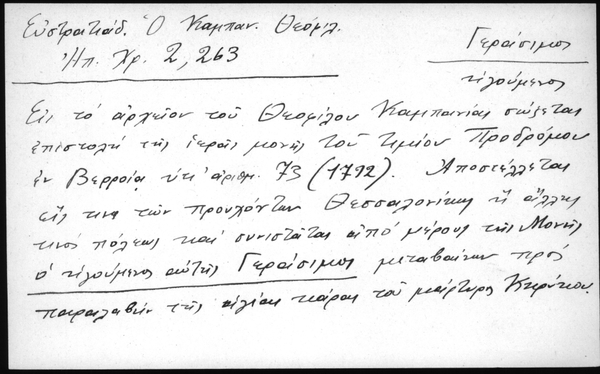 Εὐστρατιάδ. Ὁ Καμπαν. Θεόφιλ.
Ἠπ. Χρ. 2, 263
Γεράσιμος
ἡγούμενος
Εἰς τὸ ἀρχεῖον τοῦ Θεοφίλου Καμπανίας σώζεται
ἐπιστολὴ τῆς ἱερᾶς μονῆς τοῦ τιμίου Προδρόμου
ἐν Βερροίᾳ ὑπ' ἀριθμ. 73 (1792). Ἀποστέλλεται
εἴς τινα τῶν προυχόντων Θεσσαλονίκης ἢ ἄλλης
τινὸς πόλεως καὶ συνιστᾶται ἀπὸ μέρους τῆς Μονῆς
ὁ ἡγούμενος αὐτῆς Γεράσιμος μεταβαίνων πρὸς
παραλαβὴν τῆς ἁγίας κάρας τοῦ μάρτυρος Κηρύκου.